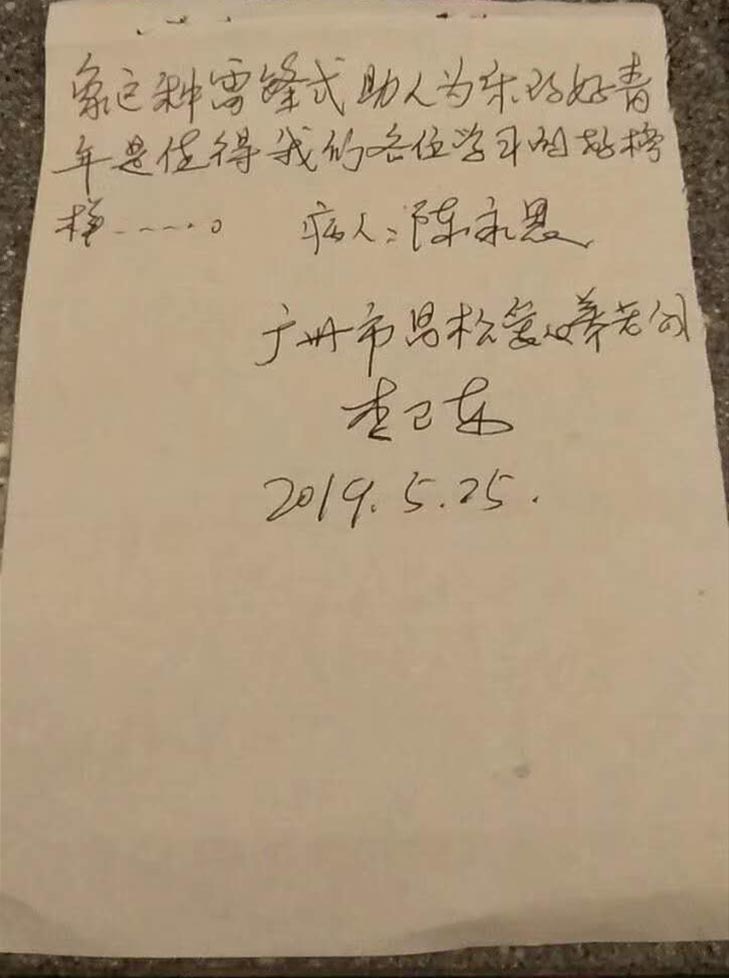 象这种雷锋式助人为乐的好青
年是值得我们各位学习的好榜
样……。 病人：陈永恩
广州市昌松爱心养老
李卫东
2019.5.25.